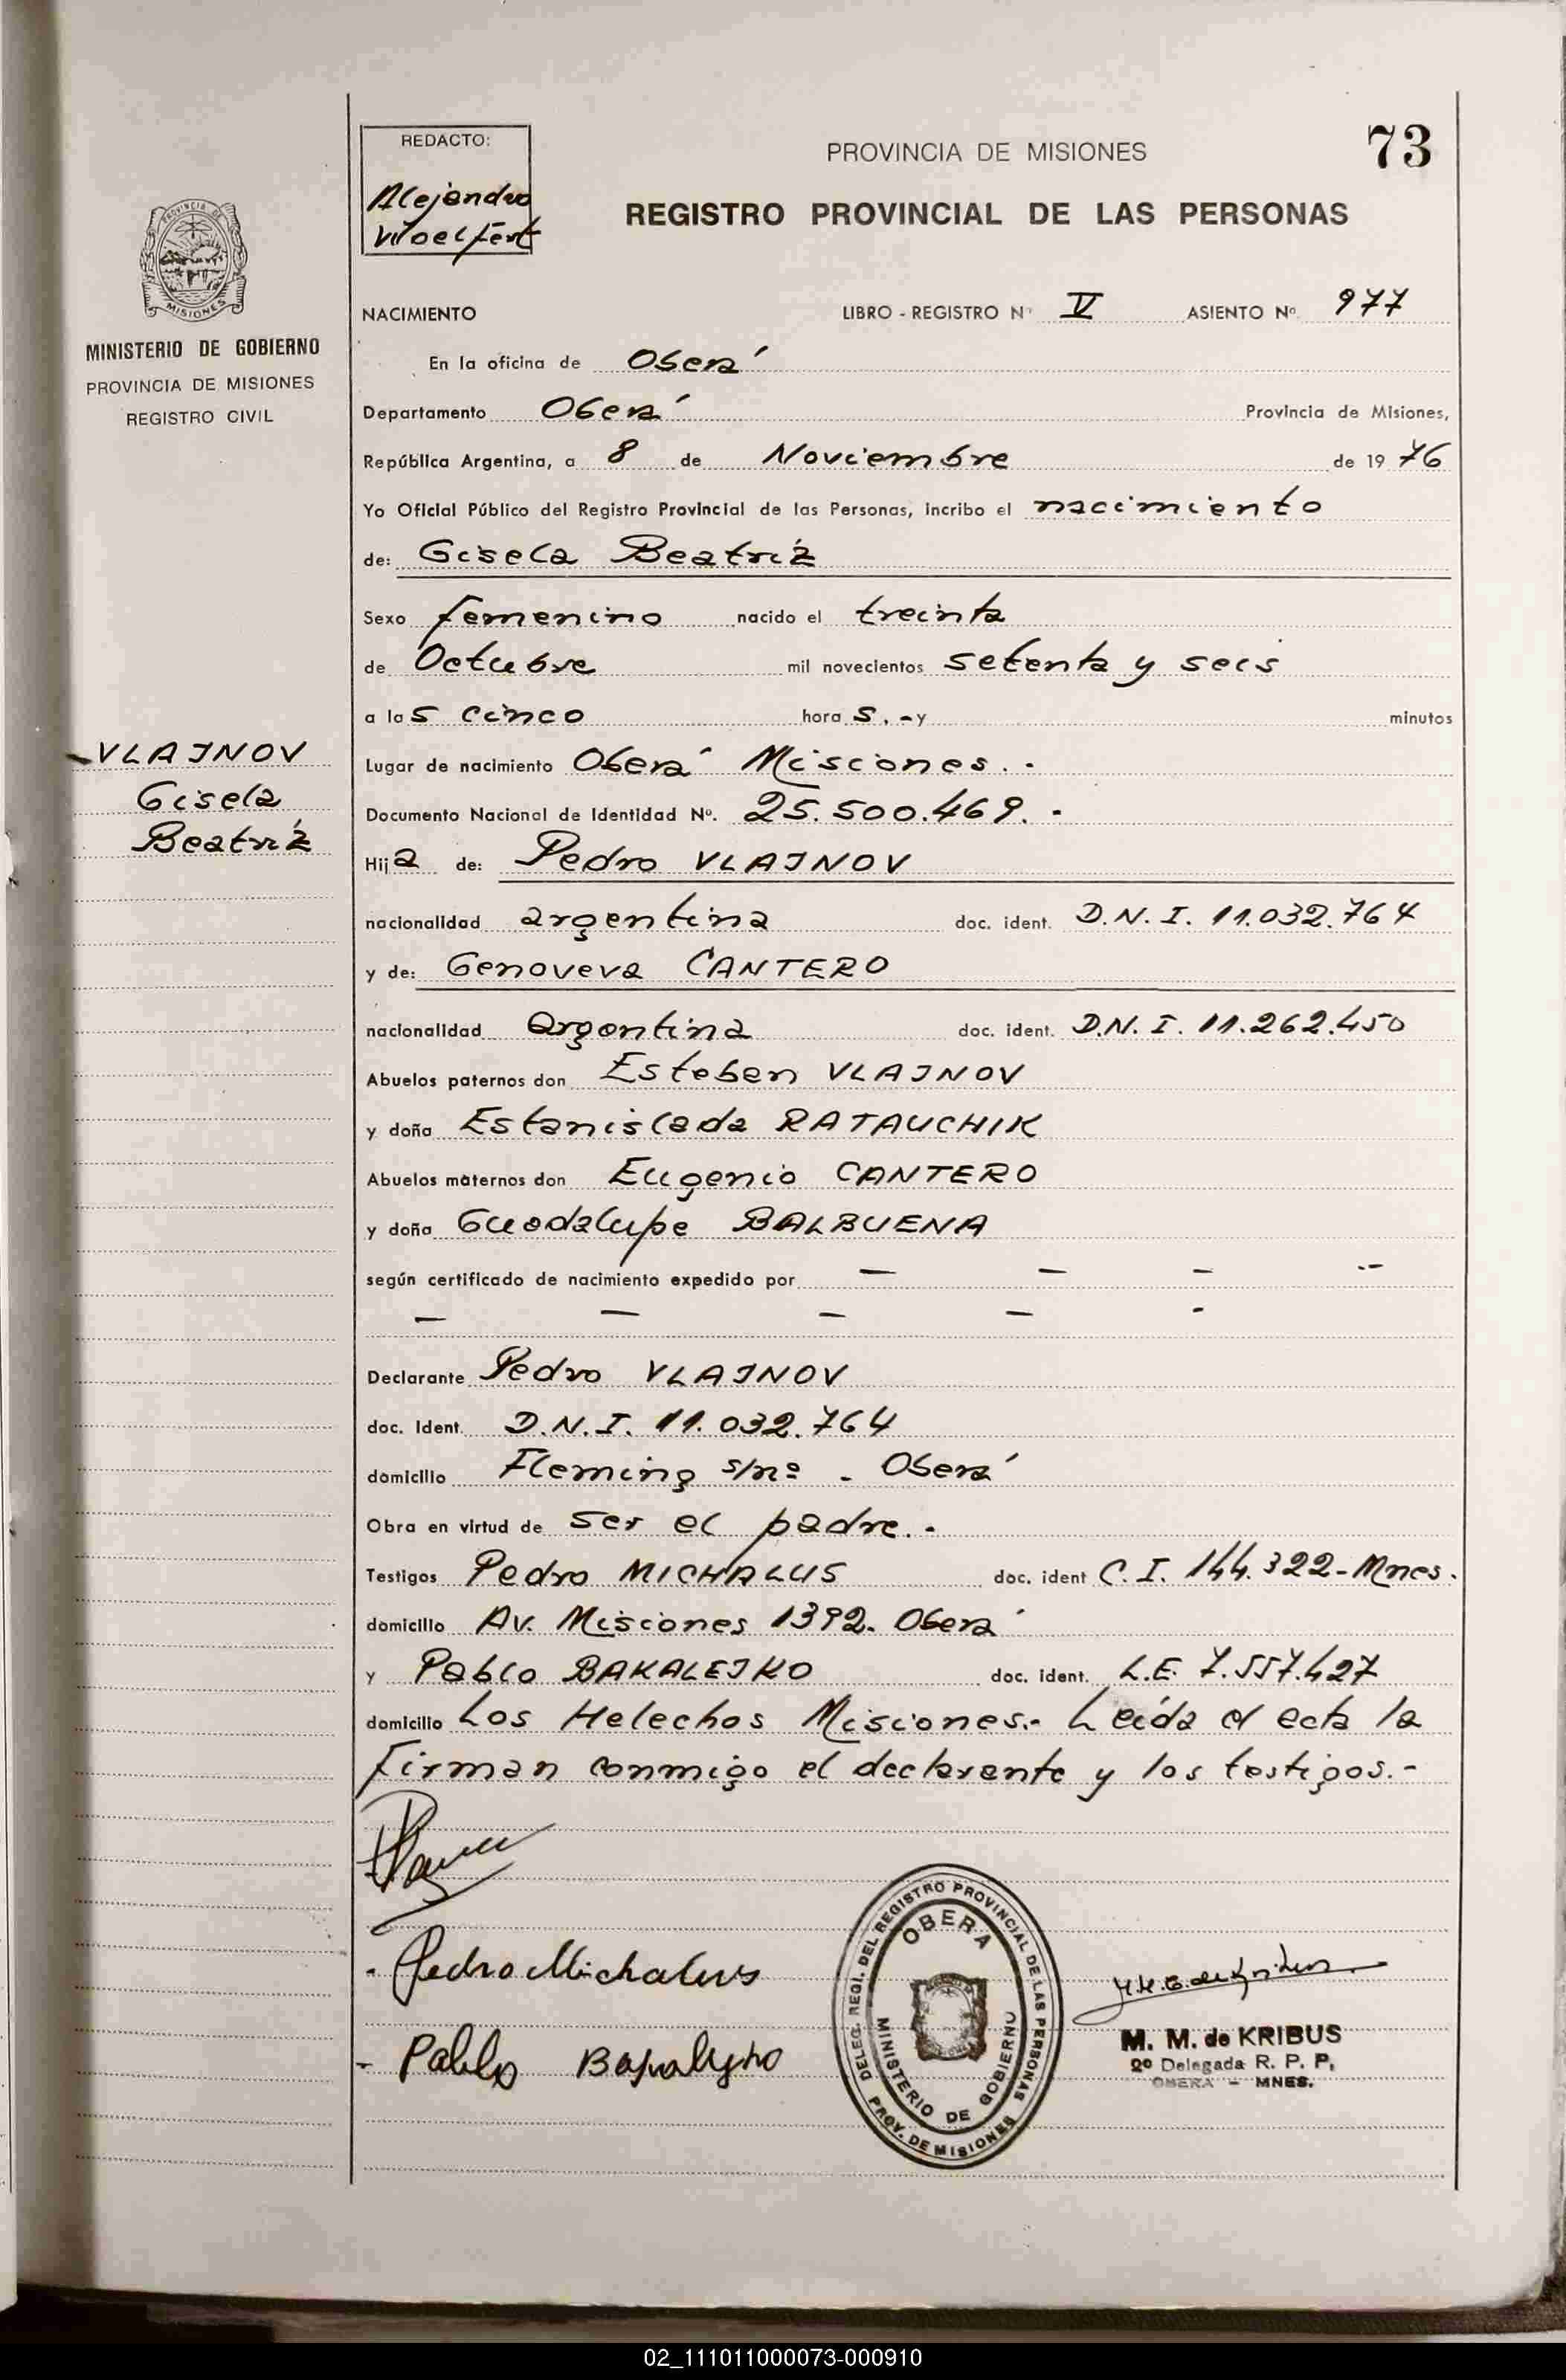 REDACTO:
Alejandro
Woelfert
PROVINCIA DE MISIONES
73
REGISTRO PROVINCIAL DE LAS PERSONAS
PROVINCIA DE
MISIONES
MINISTERIO DE GOBIERNO
PROVINCIA DE MISIONES
REGISTRO CIVIL
NACIMIENTO LIBRO - REGISTRO Nº V ASIENTO Nº 977
En la oficina de Oberá
Departamento Oberá Provincia de Misiones,
República Argentina, a 8 de Noviembre de 1976
Yo Oficial Público del Registro Provincial de las Personas, incribo el nacimiento
de: Gisela Beatriz
Sexo femenino nacido el treinta
de Octubre mil novecientos setenta y seis
a las cinco hora s.- y minutos
VLAJNOV
Gisela
Beatriz
Lugar de nacimiento Oberá Misiones.-
Documento Nacional de Identidad Nº. 25.500.469.-
Hija de: Pedro VLAJNOV
nacionalidad argentina doc. ident. D.N.I. 11.032.764
y de: Genoveva CANTERO
nacionalidad argentina doc. ident. D.N.I. 11.262.450
Abuelos paternos don Esteban VLAJNOV
y doña Estanislada RATAUCHIK
Abuelos maternos don Eugenio CANTERO
y doña Guadalupe BALBUENA
según certificado de nacimiento expedido por — — — --
— — — — -
Declarante Pedro VLAJNOV
doc. Ident. D.N.I. 11.032.764
domicilio Fleming s/nº - Oberá
Obra en virtud de ser el padre.-
Testigos Pedro MICHALUS doc. ident C.I. 144.322-Mnes.
domicilio Av. Misiones 1392. Oberá
y Pablo BAKALEJKO doc. ident. L.E. 7.557.427
domicilio Los Helechos Misiones.- Leída el acta la
firman conmigo el declarante y los testigos.-
- Pedro Michalus
- Pablo
DELEG. REGI. DEL REGISTRO PROVINCIAL DE LAS PERSONAS
OBERA
MINISTERIO DE GOBIERNO
PROV. DE MISIONES
M. M. de KRIBUS
2º Delegada R. P. P.
OBERA - MNES.
02_111011000073-000910